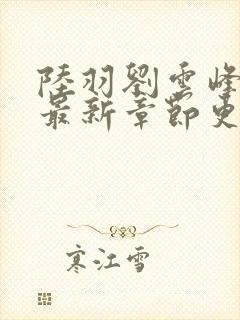 陸羽劉雲峰
最新章節更
寒江雪